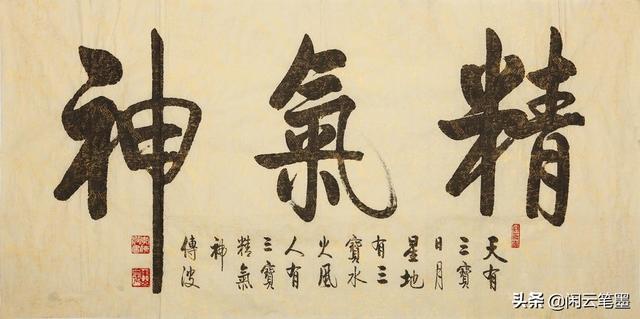 精氣神
天有
三寶
日月
星地
有三
寶水
火風
人有
三寶
精氣
神
傳波
头条 @闲云笔墨